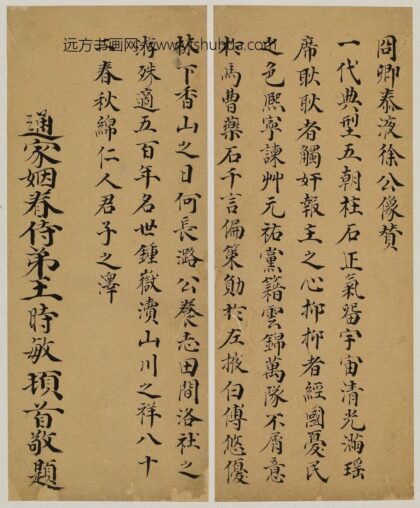 远方书画网 www.shuhda.com
冏卿泰液徐公像赞
一代典型五朝柱石正氣畱宇宙清光滿瑶
席耿耿者觸奸報主之心抑抑者經國憂民
之色熙寧諫艸元祐黨籍雲錦萬隊不屑意
於馬曹藥石千言偏策勛於左掖白傅悠優
林下香山之日何長潞公養志田間洛社之
游殊適五百年名世鍾嶽瀆山川之祥八十
春秋綿仁人君子之澤
通家姻眷侍弟王時敏頓首敬題